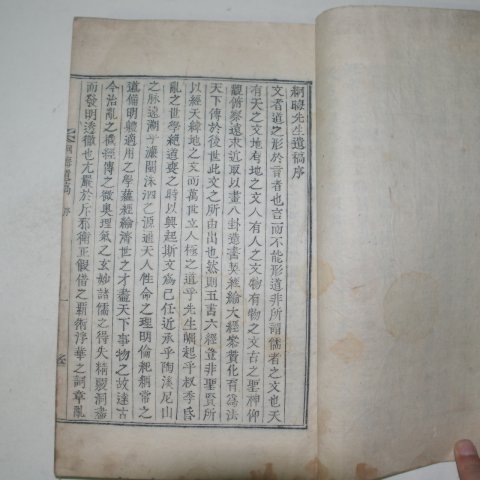 絅睦先生遺稿序
文者道之形於言者也言而不能形道非所謂儒者之文也天
有天之文地有地之文人有人之文物有物之文古之聖神仰
觀俯察遠求近取以畫八卦造書契經綸大經參贊化育爲法
天下傳於後世此文之所由出也然則五書六經豈非聖賢所
以經天緯地之文而萬世立人極之道乎先生崛起乎叔季昏
亂之世學絕道喪之時以興起斯文爲己任近承乎陶淡尼山
之脉遠溯乎濂閩洙泗之源通天人性命之理明倫秕綱常之
道備明體適用之學蘊經綸濟世之才盡天下事物之故達古
今治亂之機經傳之微奧理氣之玄妙諸儒之得失精覈洞盡
而發明透徹也尤嚴於斥邪衛正假借之覇術浮華之詞章亂
遺稿 序